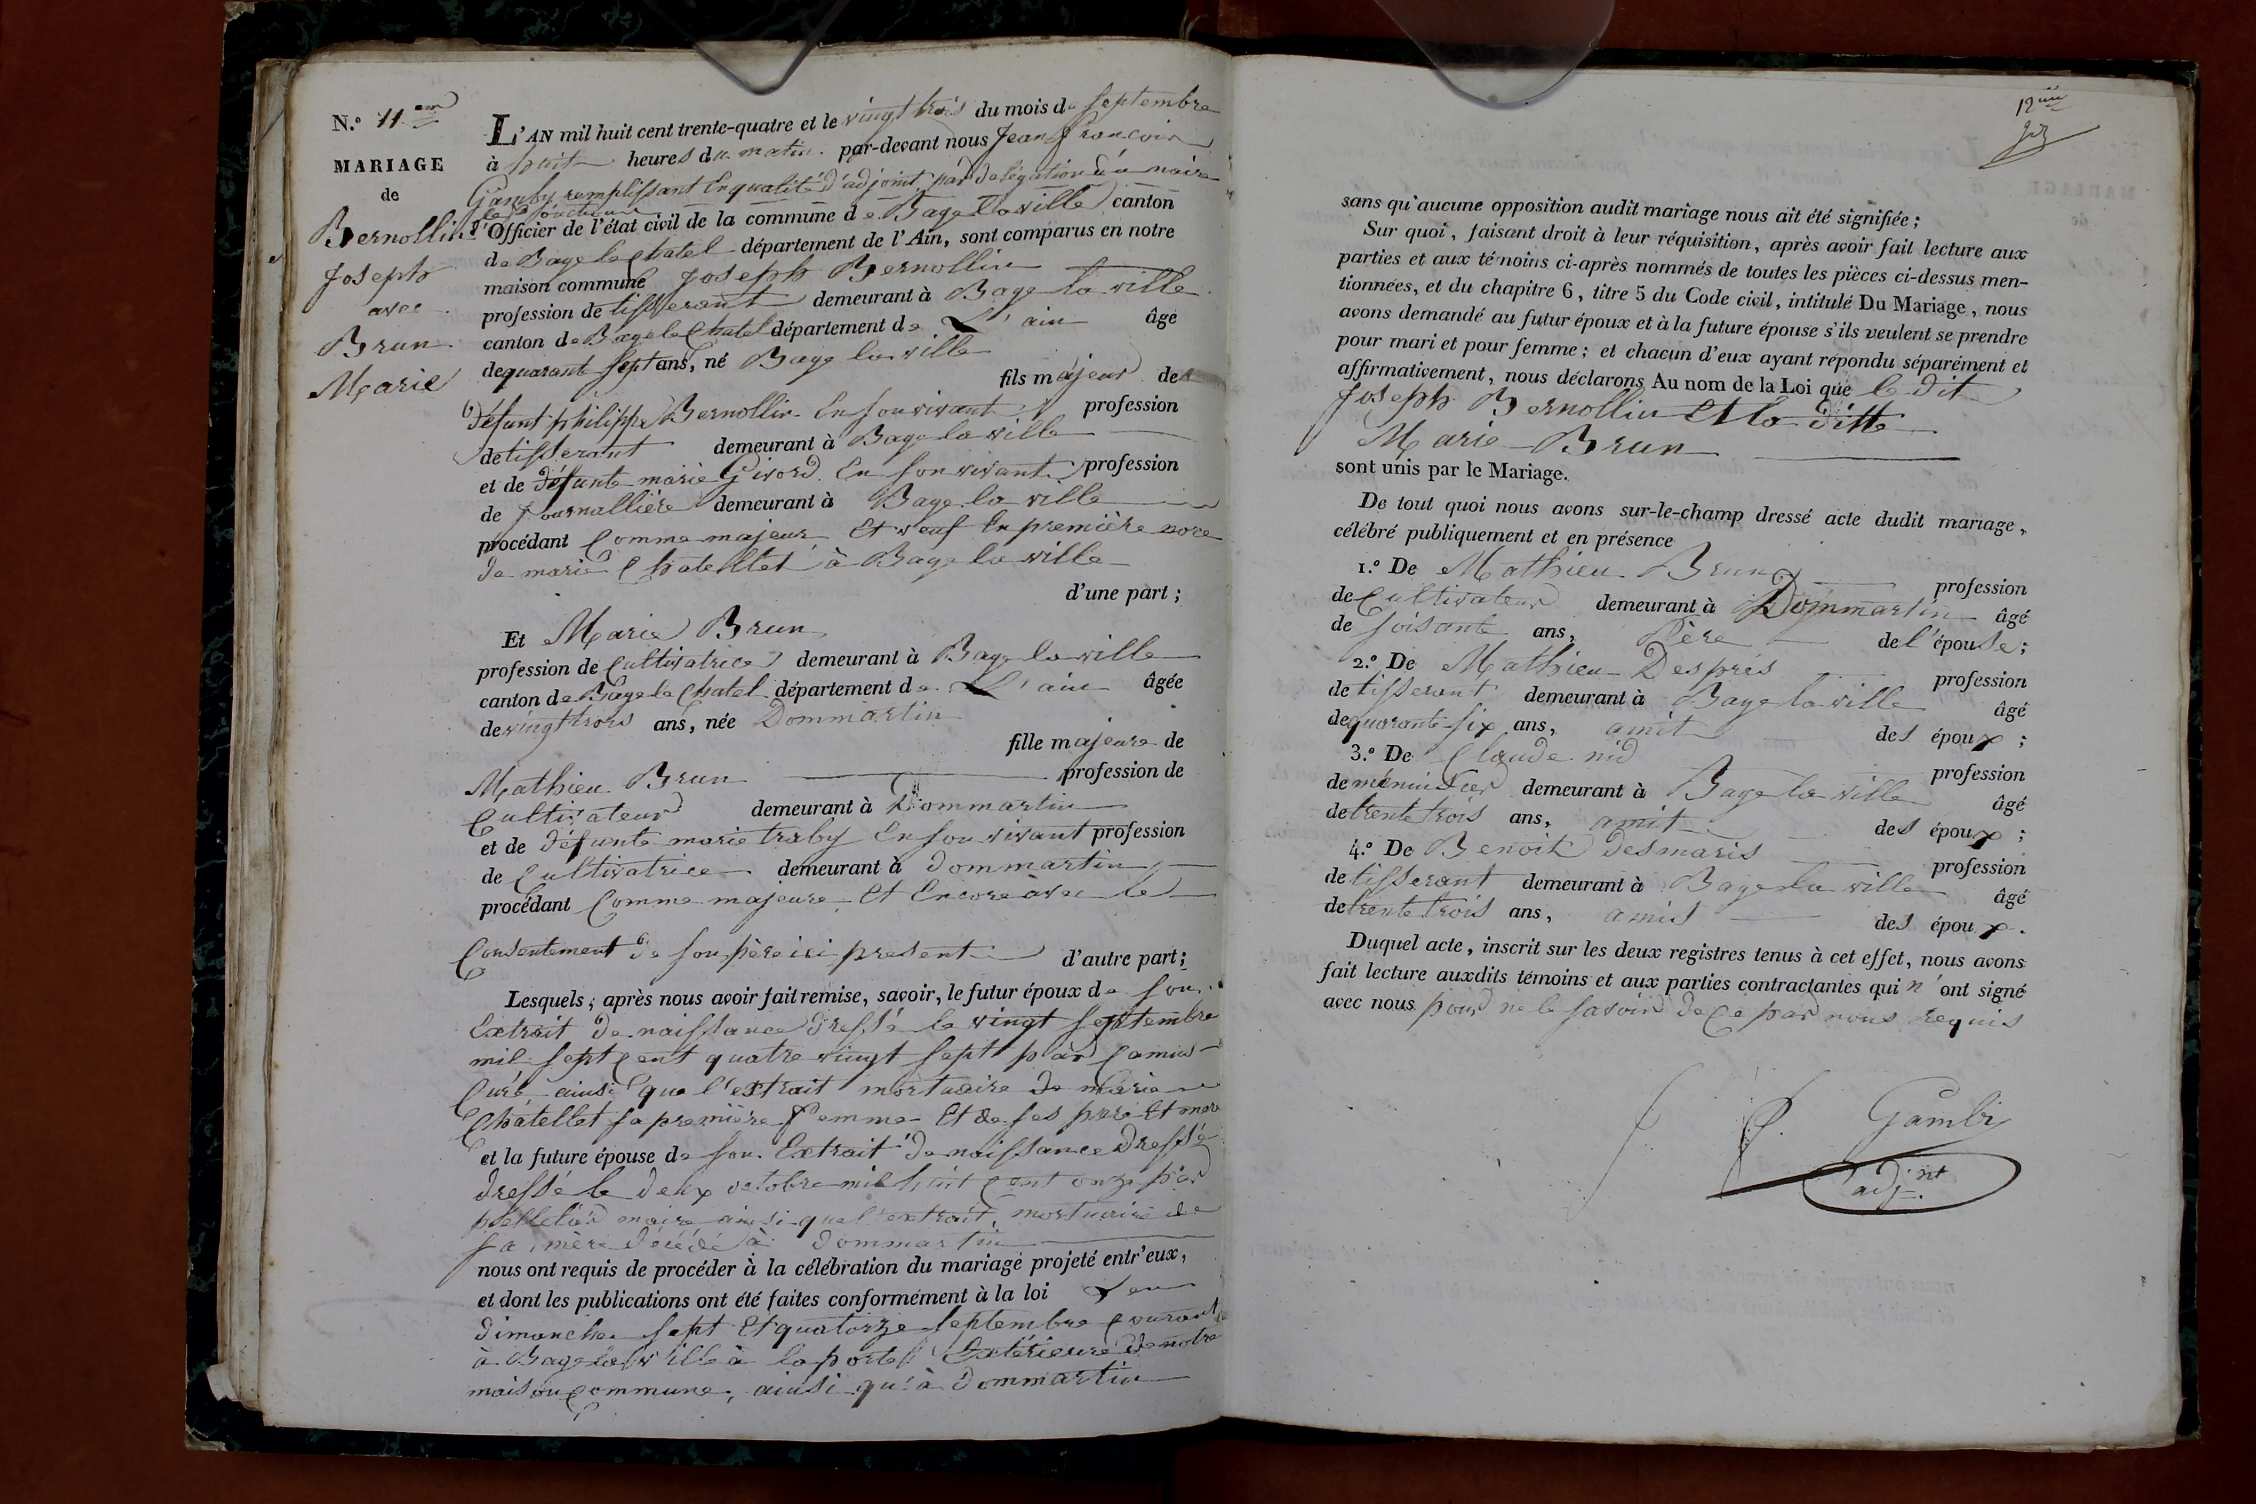 N.° 11.em
MARIAGE
de
Bernollin
Joseph
avec
Brun
Marie
L'AN mil huit cent trente-quatre et le vingt trois du mois de septembre
à huit heures du matin. par-devant nous Jean francois
Gamby remplissant En qualité d'adjoint par délégation du maire
les fonctions
d'Officier de l'état civil de la commune de Bage la ville canton
de Bage le chatel département de l'Ain, sont comparus en notre
maison commune Joseph Bernollin
profession de tisserant demeurant à Bage la ville
canton de Bage le Chatel département de L'ain âgé
de quarante sept ans, né Bage la ville
fils majeur de
défunt philippe Bernollin En son vivant profession
de tisserant demeurant à Bage la ville
et de défunte marie Givord En son vivant profession
de Journallière demeurant à Bage la ville
procédant Comme majeur Et veuf En première noce
de marie Chatellet à Bage la ville
d'une part ;
Et Marie Brun
profession de Cultivatrice demeurant à Bage la ville
canton de Bage le Chatel département de L'ain âgée
de vingt trois ans, née Dommartin
fille majeure de
Mathieu Brun profession de
Cultivateur demeurant à Dommartin
et de défunte marie traby En son vivant profession
de Cultivatrice demeurant à dommartin
procédant Comme majeure Et Encore avec le
Consentement de son père ici présent d'autre part ;
Lesquels, après nous avoir fait remise, savoir, le futur époux de son
Extrait de naissance dressé le vingt septembre
mil sept cent quatre vingt sept par Camus
Curé ainsi que l'extrait mortuaire de marie
Chatellet sa première femme Et de ses père Et mere
et la future épouse de son Extrait de naissance dressé
dressé le deux octobre mil huit cent onze par
maire ainsi que l'extrait mortuaire de
sa mère décédé à dommartin
nous ont requis de procéder à la célébration du mariage projeté entr'eux,
et dont les publications ont été faites conformément à la loi Les
dimanches sept Et quatorze septembre courant
à Bage la ville à la porte Extérieure de notre
maison commune, ainsi qu'à dommartin
12.me
sans qu'aucune opposition audit mariage nous ait été signifiée ;
Sur quoi, faisant droit à leur réquisition, après avoir fait lecture aux
parties et aux témoins ci-après nommés de toutes les pièces ci-dessus men-
tionnées, et du chapitre 6, titre 5 du Code civil, intitulé Du Mariage, nous
avons demandé au futur époux et à la future épouse s'ils veulent se prendre
pour mari et pour femme ; et chacun d'eux ayant répondu séparément et
affirmativement, nous déclarons Au nom de la Loi que le dit
Joseph Bernollin Et la ditte
Marie Brun
sont unis par le Mariage.
De tout quoi nous avons sur-le-champ dressé acte dudit mariage,
célébré publiquement et en présence
1.° De Mathieu Brun profession
de Cultivateur demeurant à Dommartin âgé
de soisante ans, Père de l'épouse ;
2.° De Mathieu Després profession
de tisserant demeurant à Bage la ville âgé
de quarante six ans, amit des époux ;
3.° De Claude nid profession
de ménuisier demeurant à Bage la ville âgé
de trente trois ans, amit des époux ;
4.° De Benoit desmaris profession
de tisserant demeurant à Bage la ville âgé
de trente trois ans, amis des époux.
Duquel acte, inscrit sur les deux registres tenus à cet effet, nous avons
fait lecture auxdits témoins et aux parties contractantes qui n'ont signé
avec nous pour ne le savoir de ce par nous requis
Gambi
adj.nt